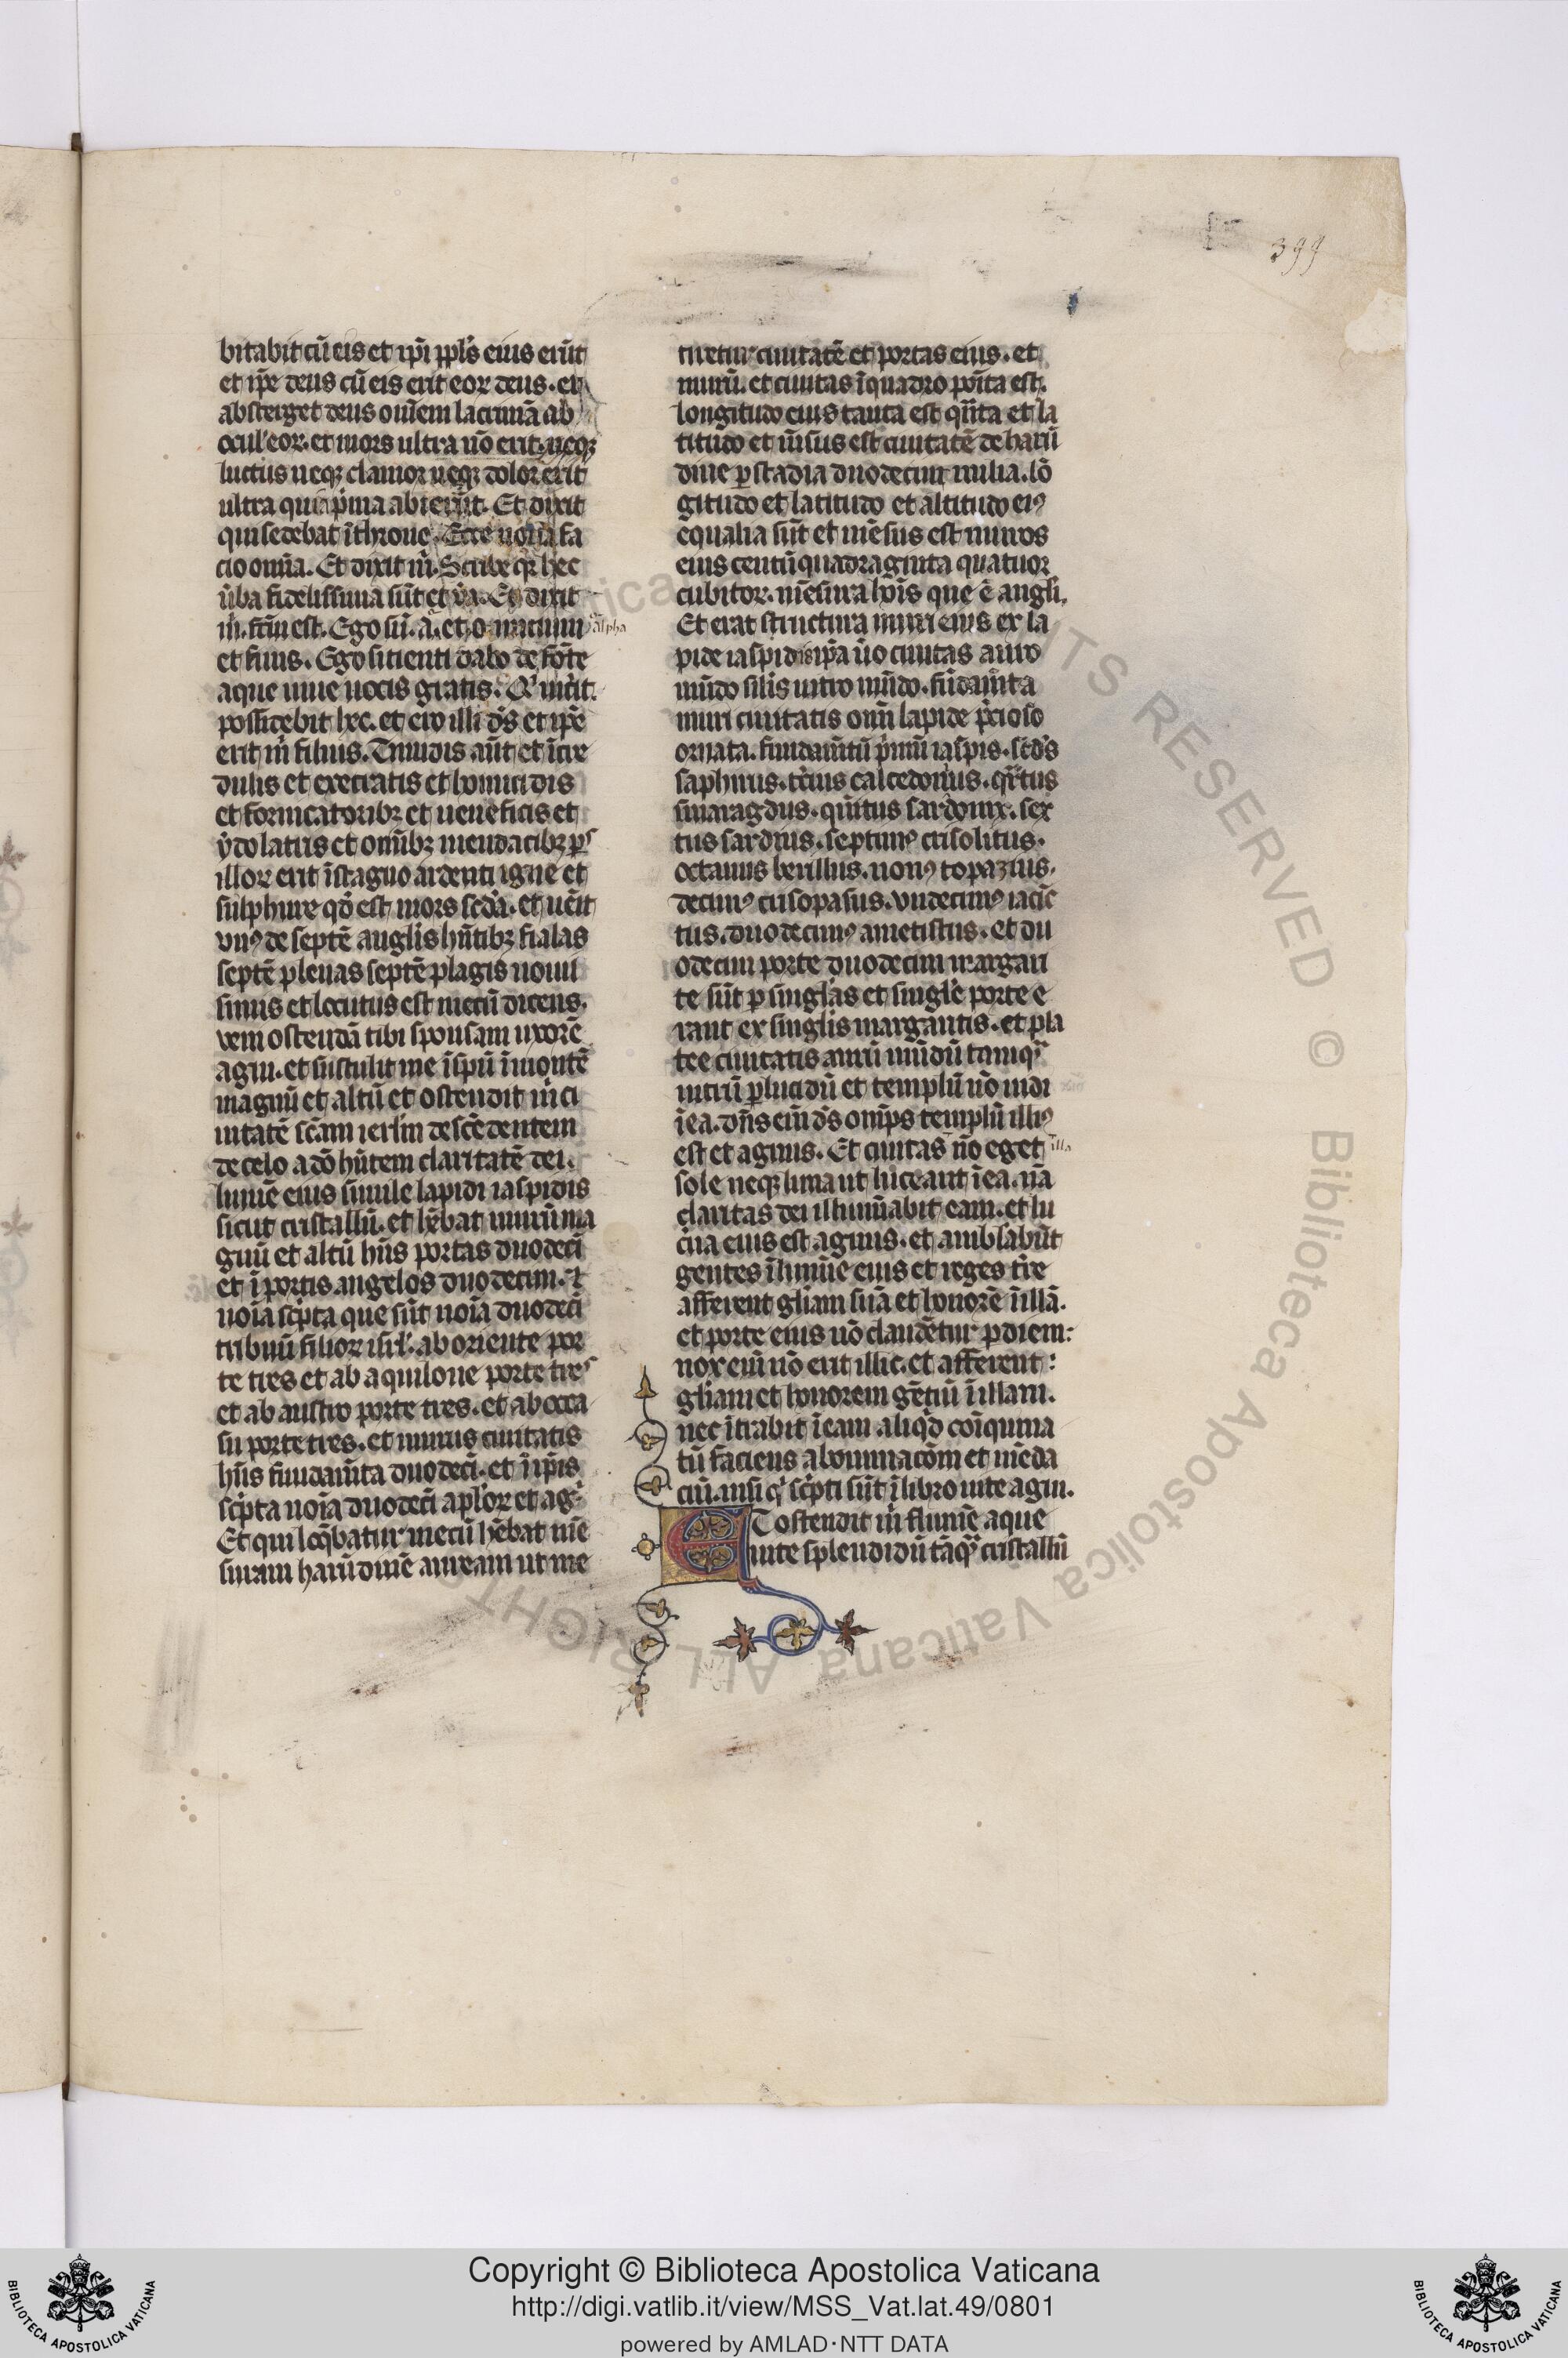 399
bitabit cū eis et ip̄i ppl̄s eius erūt
et ip̄e deus cū eis erit eoꝝ deus. et
absterget deus om̄em lacrimā ab
ocul̓ eoꝝ. et mors ultra nō erit. neqꝫ
luctus neqꝫ clamor neqꝫ dolor erit
ultra quia p̓ma abierūt. Et dixit
qui sedebat ī throno. Ecce noua fa
cio omīa. Et dixit m̓. Scribe qr̄ hec
ūba fidelissima sūt et ūa. Et dixit
m̓. fc̄m est. Ego sū. ā. et o. initium
alpha
et finis. Ego sitienti dabo de fōte
aque uiue uocis gratis. Qͥ uic̄it.
possidebit hec. et ero illi ds̄ et ip̄e
erit m̓ filius. Timidis aūt et īcre
dulis et execratis et homicidis
et fornicatoribꝫ et ueneficis et
ydolatris et om̄ibꝫ mendacibꝫ pˢ
illoꝝ erit ī stagno ardenti igne et
sulphure qd̄ est mors sc̄da. et uēit
vnꝰ de septē anglis hn̄tibꝫ fialas
septē plenas septē plagis noui
simis et locutus est mecū dicens.
veni ostendā tibi sponsam uxorē
agni. et sustulit me ī sp̄u ī montē
magnū et altū et ostendit m̓ ci
uitatē sc̄am ierl̄m desc̄edentem
de celo a dō hn̄tem claritatē dei.
lumē eius simile lapidi iaspidis
sicut cristallū. et hēbat murū ma
gnū et altū hn̄s portas duodecī
et ī portis angelos duodecim. ⁊
noīa sc̓pta que sūt noīa duodecī
tribuū filioꝝ isrl̓. ab oriente por
te tres et ab aquilone porte tres
et ab austro porte tres. et ab occa
su porte tres. et murus ciuitatis
hn̄s fundam̄ta duodecī. et ī ip̄is
sc̓pta noīa duodecī apl̓oꝝ et ag̓.
Et qui loq̄batur mecū hēbat mē
suram harūdinē auream ut me
tiretur ciuitatē et portas eius. et
murū. et ciuitas ī quadro poīta est.
longitudo eius tanta est qn̄ta et la
titudo et mēsus est ciuitatē de harū
dine ꝑ stadia duodecim milia. lō
gitudo et latitudo et altitudo eiꝰ
equalia sūt et mēsus est muros
eius centū quadraginta quatuor
cubitoꝝ. mēsura hoīs que ē angli.
Et erat structura muri eius ex la
pide iaspidis ip̄a ūo ciuitas auro
mūdo sil̓is uitro mūdo. fūdam̄ta
muri ciuitatis om̄i lapide p̄cioso
ornata. fundam̄tū p̓mū iaspis. sc̄ds
saphirus. tc̓ius calcedonius. qr̄tus
smaragdus. quītus sardonix. sex
tus sardius. septimꝰ crisolitus.
octauus berillus. nonꝰ topazius.
decimꝰ crisopasus. vndecimꝰ iacīc
tus. duodecimꝰ ametistus. et du
odecim porte duodecim margari
te sūt ꝑ singl̓as et singl̓e porte e
rant ex singlis margaritis. et pla
tee ciuitatis aurū mūdū tamqᵃ
uitrū ꝑlucidū et templū nō uidi
ī ea. dn̄s eni ds̄ om̄ps templū illiꝰ
est et agnus. Et ciuitas nō eget
illa
sole neqꝫ luna ut luceant ī ea. nā
claritas dei illumīabit eam. et lu
c̓na eius est agnus. et ambl̓abūt
gentes ī lumīe eius et reges tr̄e
afferent gl̓iam suā et honorē ī illā.
et porte eius nō claudētur ꝑ diem:
nox eni nō erit illic. et afferent:
gl̓iam et honorem gētiū ī illam.
nec ītrabit ī eam aliqd̄ coīquina
tū faciens abominacōm et mēda
ciū. nisi qͥ sc̓pti sūt ī libro uite agni.
ET ostendit m̓ fluuiē aque
uite splendidū tāqᵃ cristallū
Copyright © Biblioteca Apostolica Vaticana
http://digi.vatlib.it/view/MSS_Vat.lat.49/0801
powered by AMLAD·NTT DATA
BIBLIOTECA APOSTOLICA VATICANA
BIBLIOTECA APOSTOLICA VATICANA
ALL RIGHTS RESERVED © Biblioteca Apostolica Vaticana